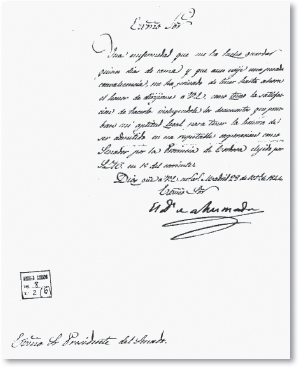 Exmo Sor
Una enfermedad que me ha hecho guardar
quince dias de cama y que aun exije una penosa
convalecencia, no ha privado de tener hasta ahora
el honor de dirijirme á V.E. como tengo la satisfac-
cion de hacerlo incluyendole los documentos que prue-
ban mi aptitud legal para tener la honra de
ser admitido en esa respetable corporacion como
Senador por la Provincia de Cordova elejido por
S.M. en 15 del corriente.
Dios gue á V.E. ms as. Madrid 29 de
Exmo Sor
El D. de Ahumada
Exmo Sr Presidente del Senado.